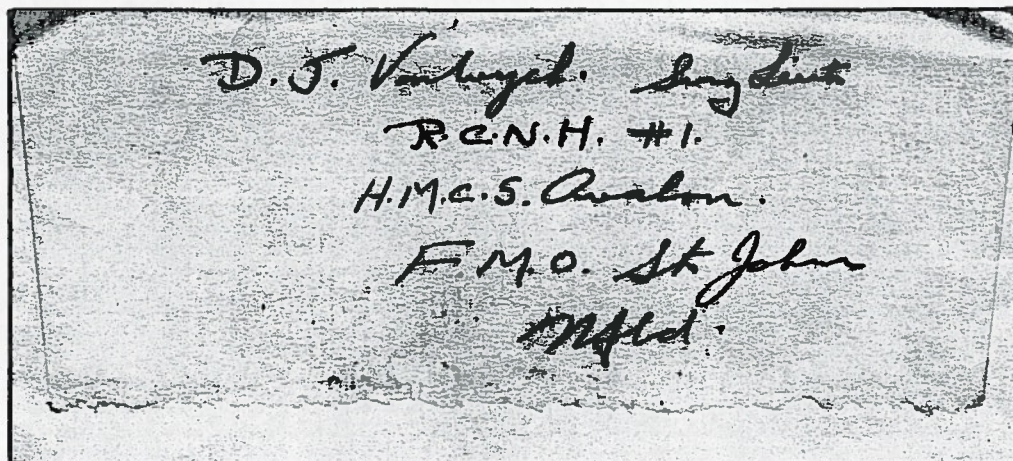 D. J. Surg Lieut
R.C.N.H. #1.
H.M.C.S. Avalon.
F M.O. St John
Nfld.